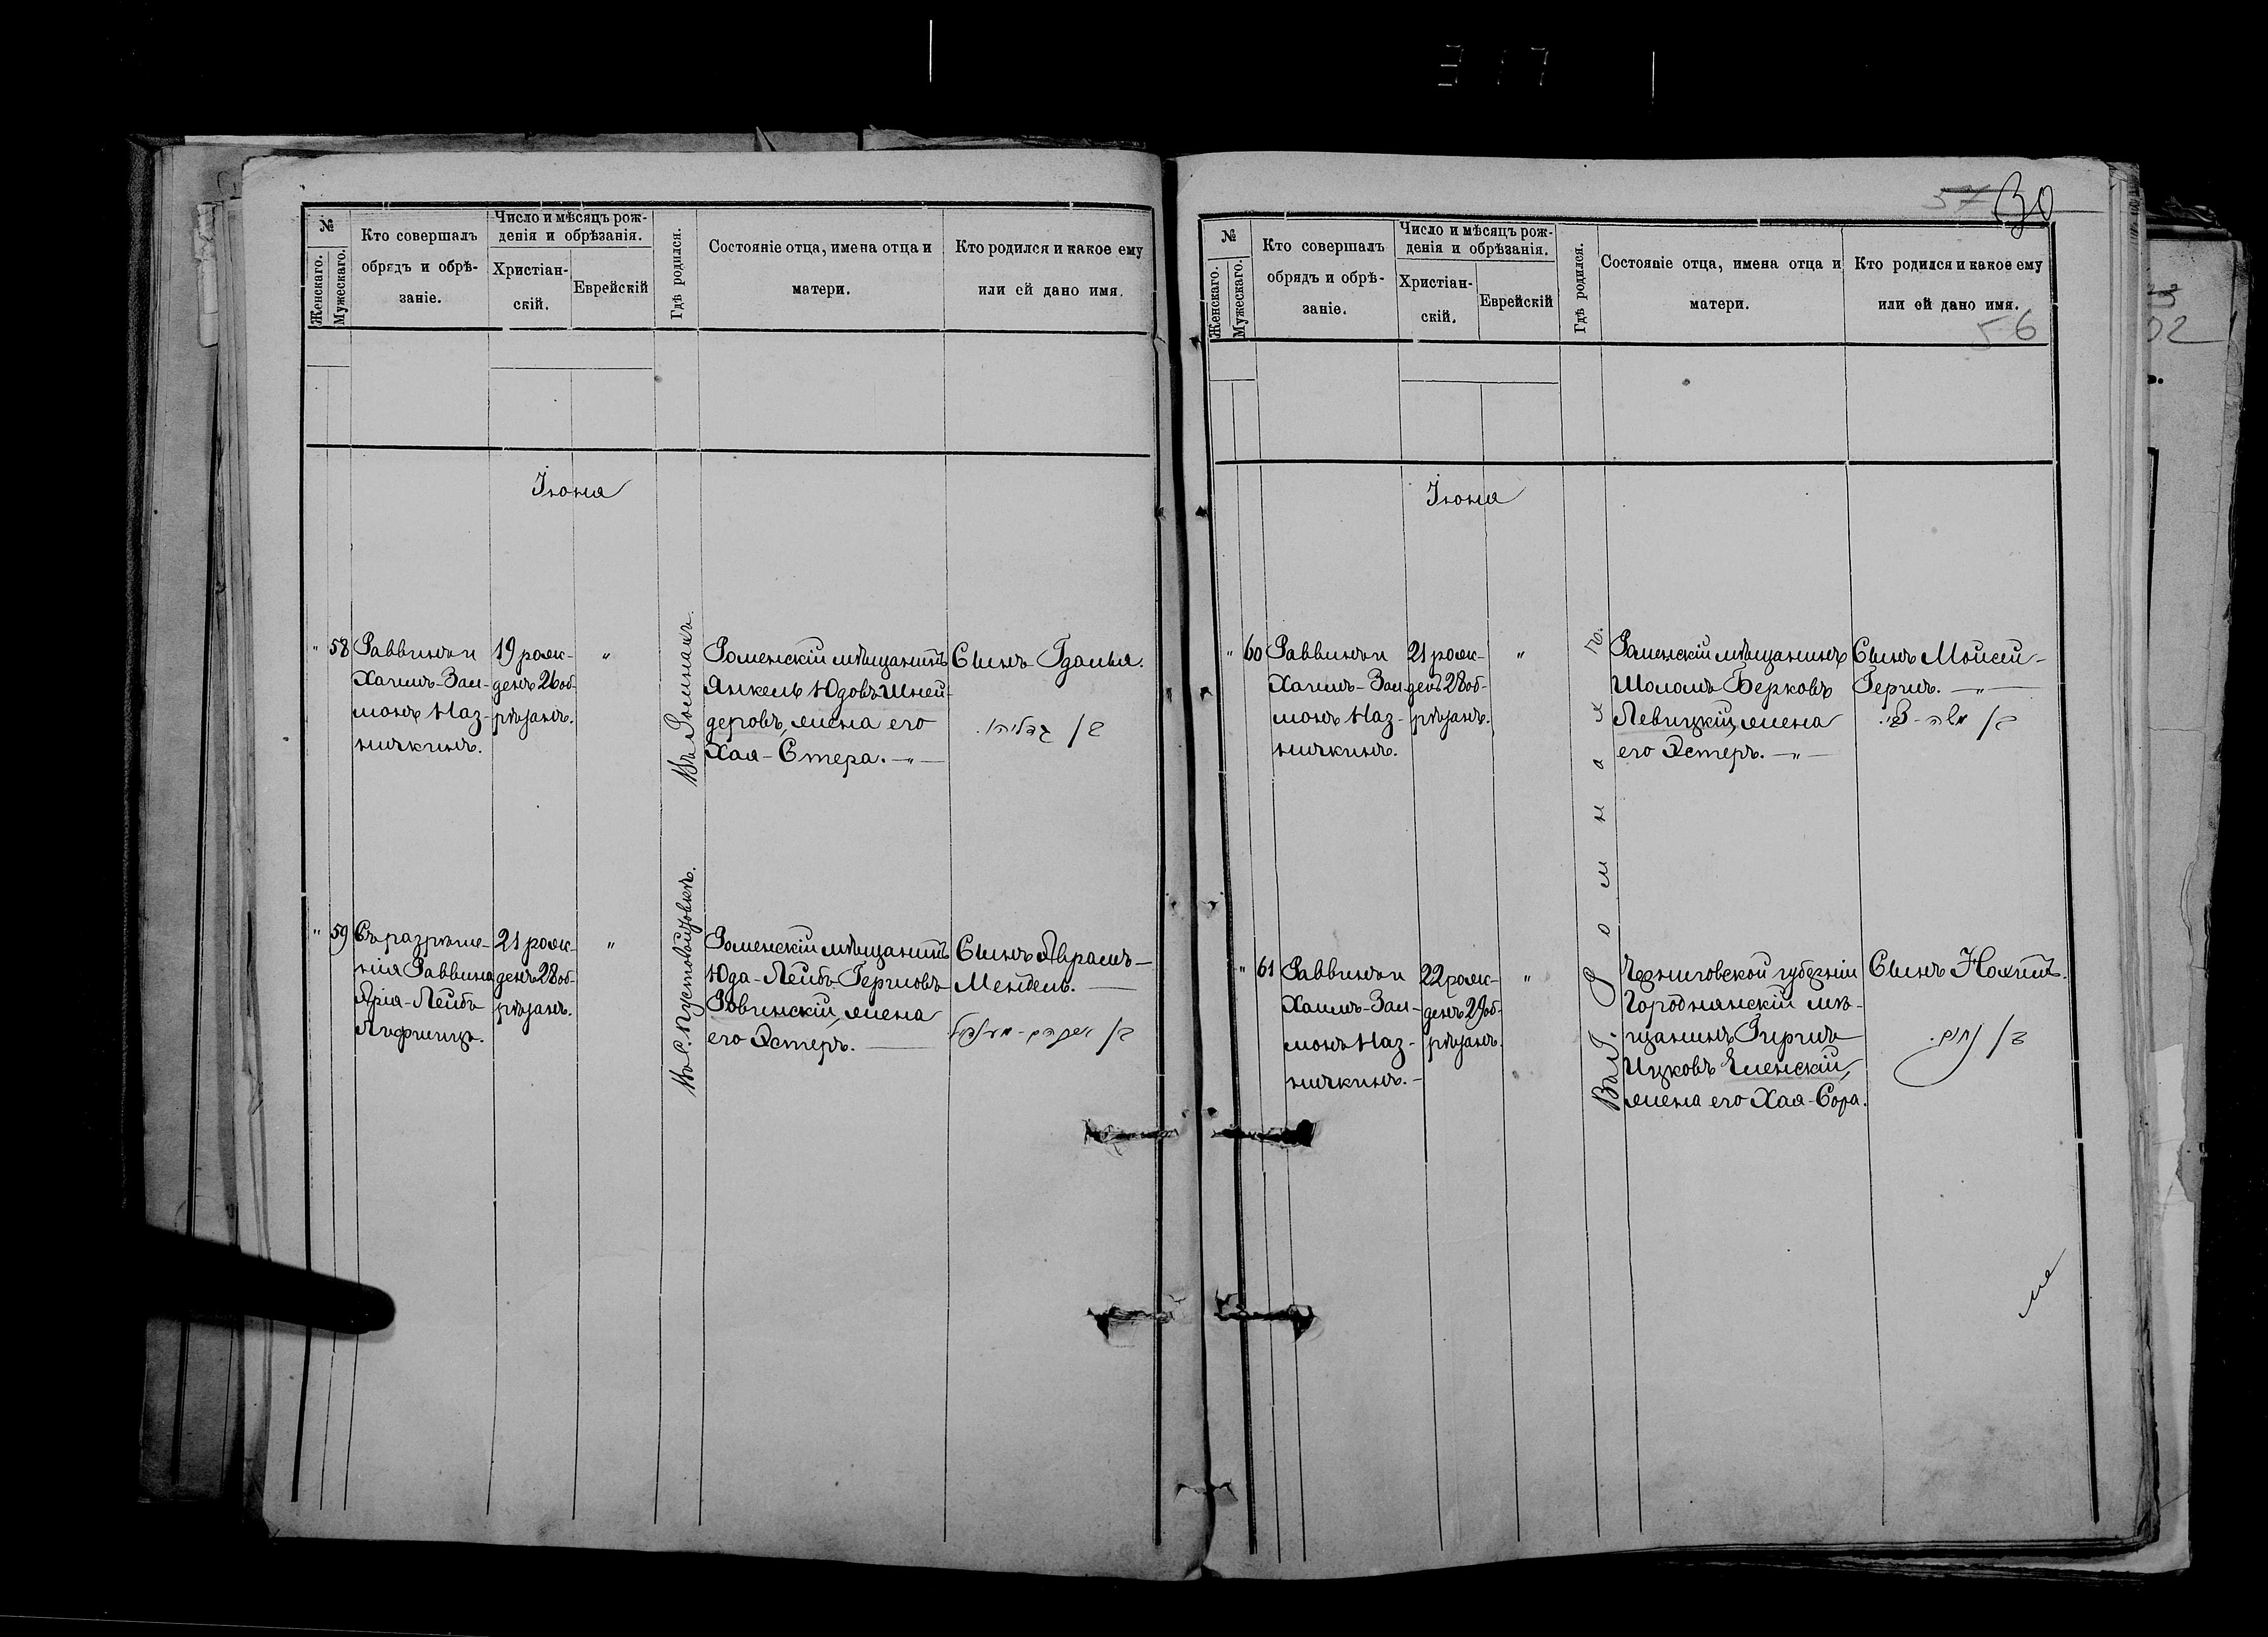 317
№
Женскаго.
Мужескаго.
Кто совершалъ
обрядъ и обрѣ-
заніе.
Число и мѣсяцъ рож-
денія и обрѣзанія.
Христіан-
скій.
Еврейскій
Гдѣ родился.
Состояніе отца, имена отца и
матери.
Кто родился и какое ему
или ей дано имя.
Іюня
" 58
Раввинъ и
Хаимъ-Зал-
монъ Наз-
ничкинъ.
19 рож-
денъ 26 об-
рѣзанъ.
"
Въ Ромнахъ.
Роменскій мѣщанинъ
Янкель Юдовъ Шней-
деровъ, жена его
Хая-Стера. —"—
Сынъ Гдалья.
גדליהו.
" 59
Съ разрѣше-
нія Раввина
Арія-Лейбъ
Лифшицъ.
21 рож-
денъ 28 об-
рѣзанъ.
"
Въ с. Пустовойтовкѣ.
Роменскій мѣщанинъ
Юда-Лейбъ Гершовъ
Ровинскій, жена
его Эстеръ. —
Сынъ Аврамъ-
Мендель. —
30
№
Женскаго.
Мужескаго.
Кто совершалъ
обрядъ и обрѣ-
заніе.
Число и мѣсяцъ рож-
денія и обрѣзанія.
Христіан-
скій.
Еврейскій
Гдѣ родился.
Состояніе отца, имена отца и
матери.
Кто родился и какое ему
или ей дано имя.
56
Іюня
" 60
Раввинъ и
Хаимъ-Зал-
монъ Наз-
ничкинъ.
21 рож-
денъ 28 об-
рѣзанъ.
"
Роменскій мѣщанинъ
Шоломъ Берковъ
Левицкій, жена
его Эстеръ. —"—
Сынъ Мойсей-
Гершъ. —"—
משה - צבי.
" 61
Раввинъ и
Хаимъ-Зал-
монъ Наз-
ничкинъ. -
22 рож-
денъ 29 об-
рѣзанъ.
"
Въ г. Ромнахъ.
Черниговской губерніи
Городнянскій мѣ-
щанинъ Гиршъ
Ицковъ Яменскій,
жена его Хая-Сора.
Сынъ Нохимъ.
נחום.
02